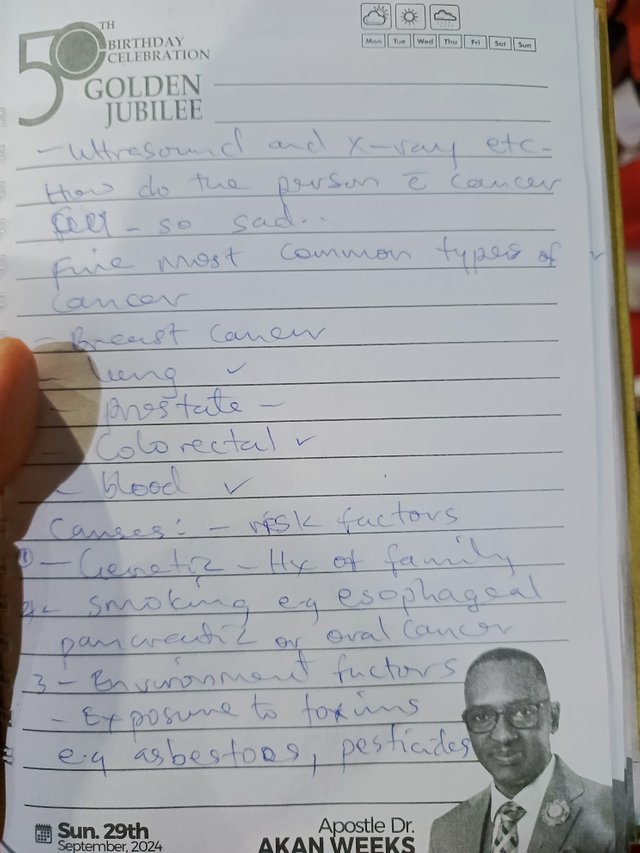 50TH
BIRTHDAY
CELEBRATION
GOLDEN
JUBILEE
Mon Tue Wed Thu Fri Sat Sun
- Ultrasound and X-ray etc -
How do the person c̄ cancer
feel - so sad..
five most common types of
cancer
- Breast Cancer
- lung ✓
- prostate -
- Colorectal ✓
- blood ✓
Causes: - risk factors
① - Genetic - Hx of family
2 - smoking eg esophageal
pancreatic or oral cancer
3 - Environment factors
- Exposure to toxins
e.g asbestoes, pesticides
Sun. 29th
September, 2024
Apostle Dr.
AKAN WEEKS